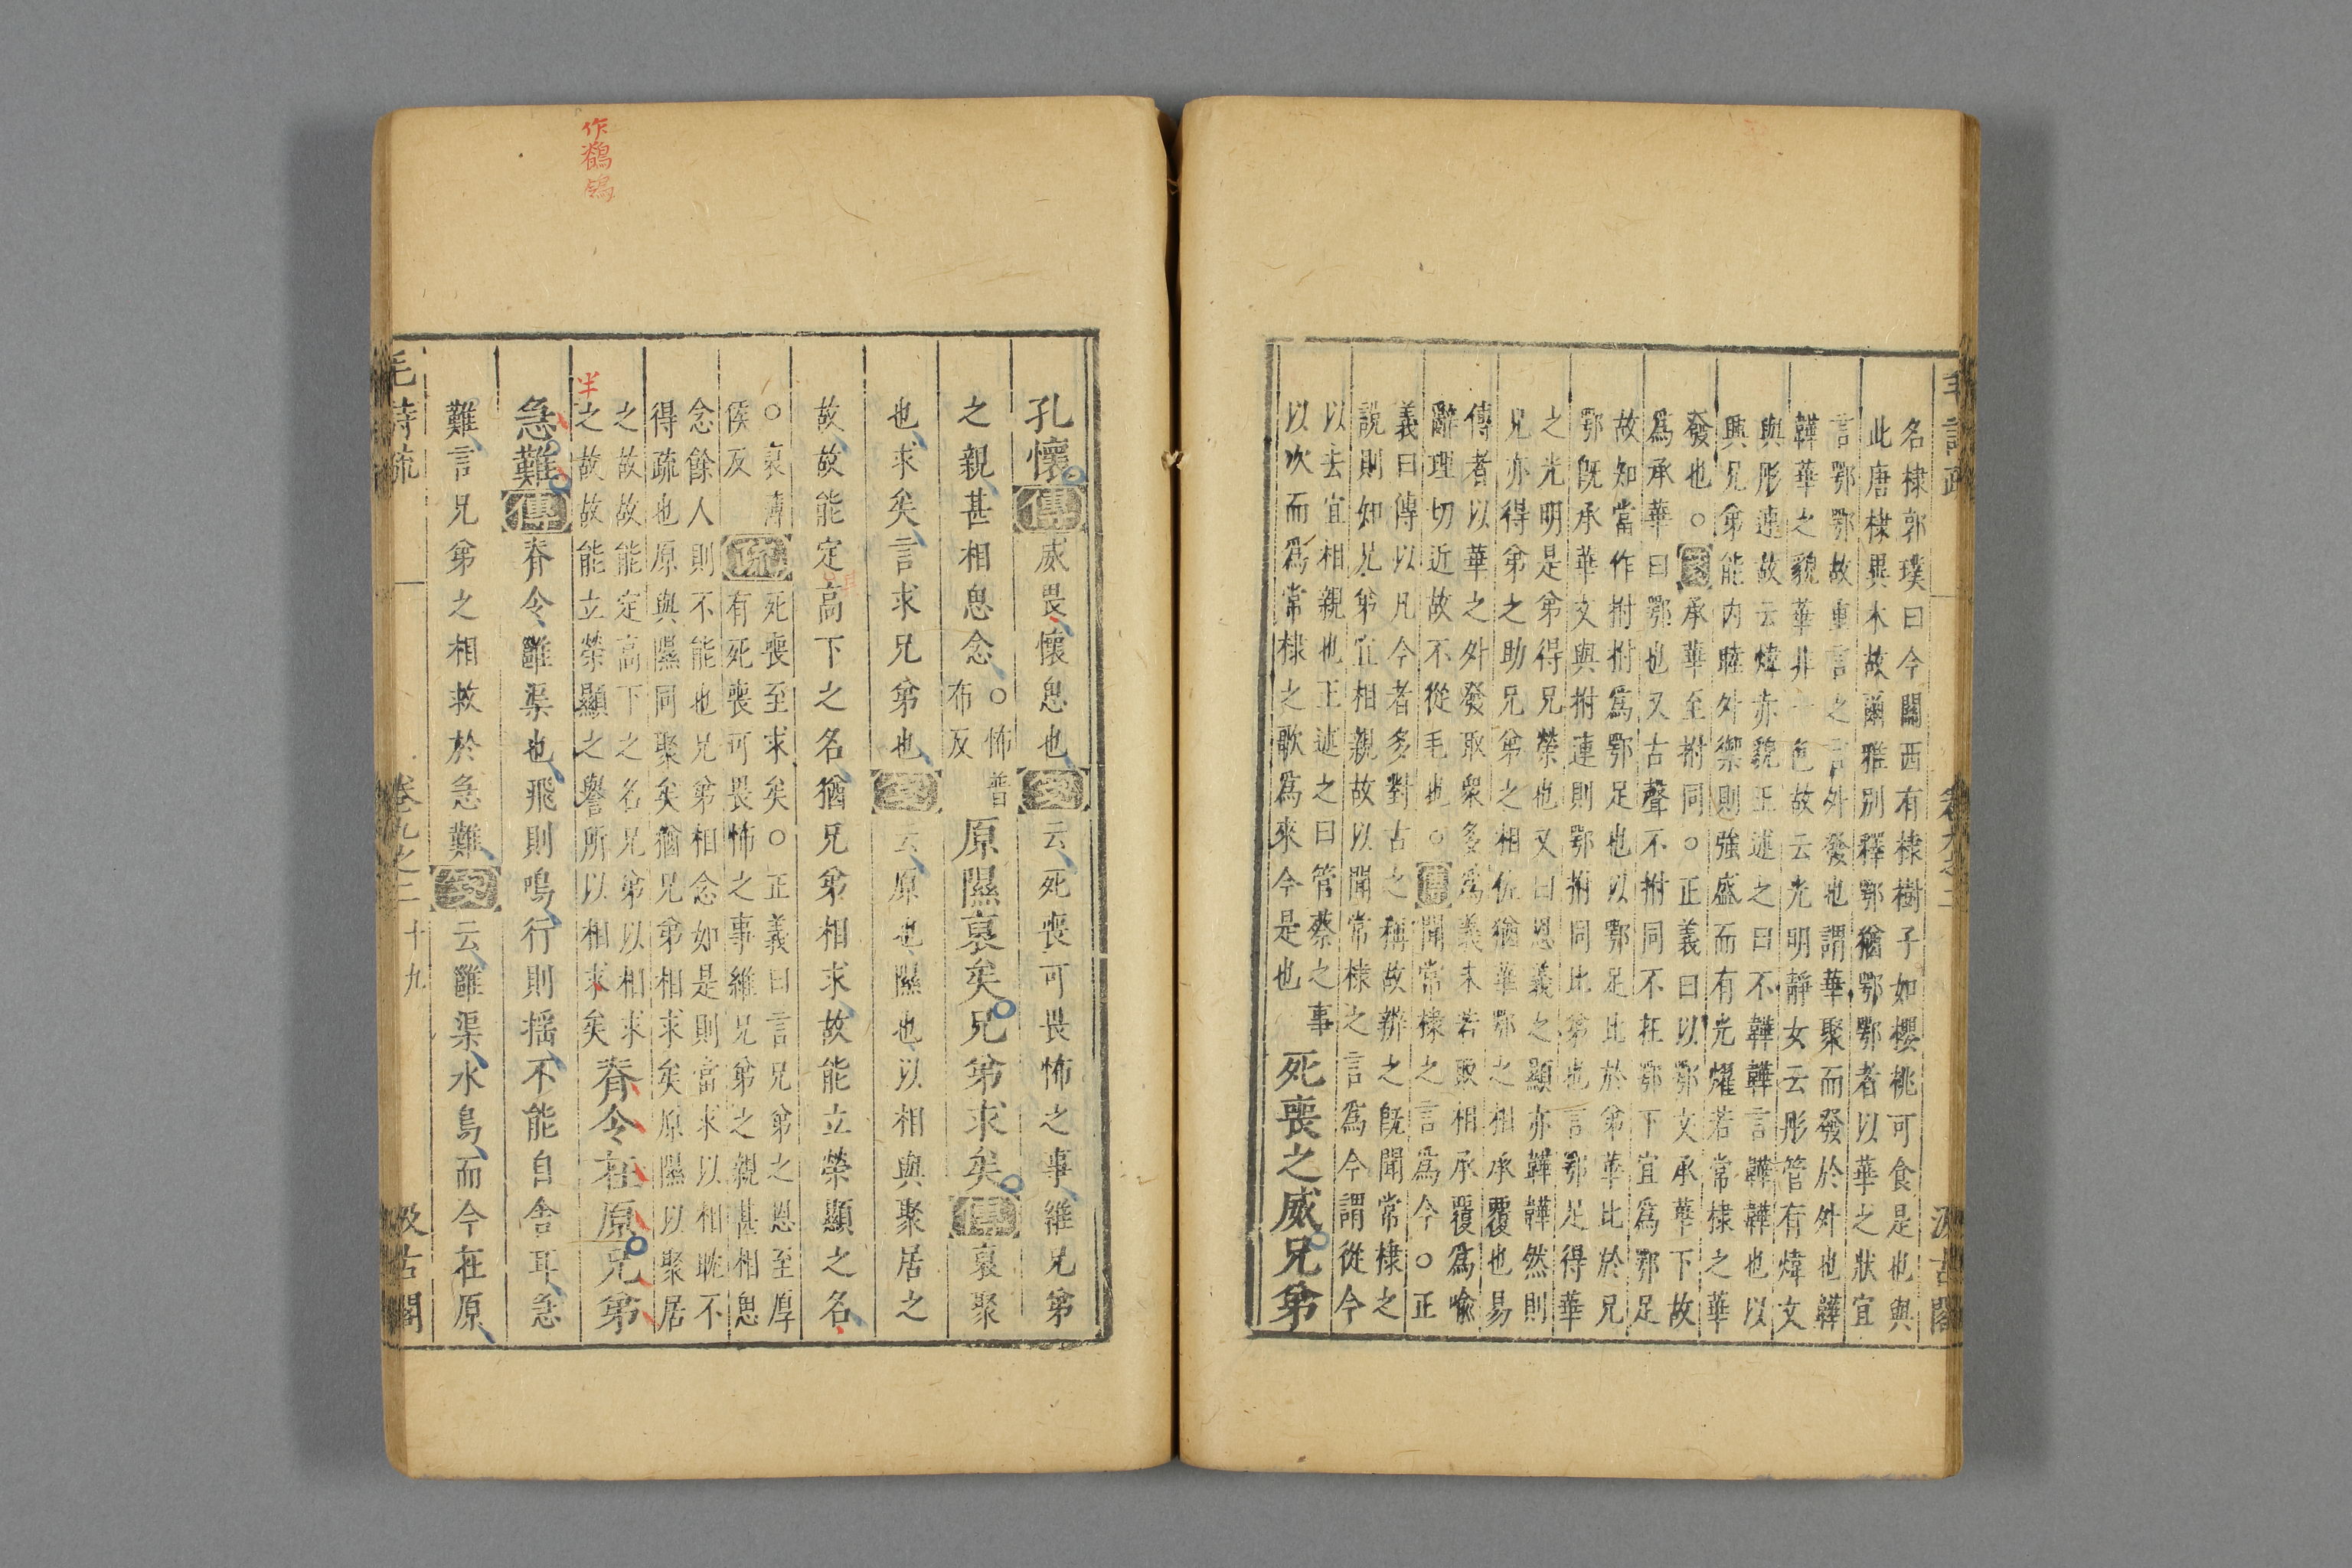 名棣郭璞曰今關西有棣樹子如櫻桃可食是也與
此唐棣異木故爾雅別釋鄂猶鄂鄂者以華之狀宜
言鄂鄂故重言之言外發也謂華聚而發於外也韡
韡華之貌華非一色故云光明靜女云彤管有煒文
與彤連故云煒赤貌王述之曰不韡韡言韡韡也以
興兄弟能内睦外禦則強盛而有光耀若常棣之華
發也○箋承華至拊同○正義曰以鄂文承華下故
爲承華曰鄂也又古聲不拊同不在鄂下宜爲鄂足
故知當作拊拊爲鄂足也以鄂足比於弟華比於兄
鄂旣承華文與拊連則鄂拊同比弟也言鄂足得華
之光明是弟得兄榮也又曰恩義之顯亦韡韡然則
兄亦得弟之助兄弟之相佐猶華鄂之相承覆也易
傳者以華之外發取衆多爲義未若取相承覆爲喻
辭理切近故不從毛也○傳聞常棣之言爲今○正
義曰傳以凡今者多對古之稱故辨之旣聞常棣之
說則如兄弟宜相親故以聞常棣之言爲今謂從今
以去宜相親也王述之曰管蔡之事
以次而爲常棣之歌爲來今是也
死喪之威兄弟
毛詩疏
卷九之二
汲古閣
孔懷傳威畏懷思也箋云死喪可畏怖之事維兄弟
之親甚相思念○怖普布反原隰裒矣兄弟求矣傳裒聚
也求矣言求兄弟也箋云原也隰也以相與聚居之
故故能定高下之名猶兄弟相求故能立榮顯之名
○裒薄
侯反
疏死喪至求矣○正義曰言兄弟之恩至厚
有死喪可畏怖之事維兄弟之親甚相思
念餘人則不能也兄弟相念如是則當求以相耽不
得疏也原與隰同聚矣猶兄弟相求矣原隰以聚居
之故故能定高下之名兄弟以相求
之故故能立榮顯之譽所以相求矣
脊令在原兄弟
急難傳脊令雝渠也飛則鳴行則揺不能自舍耳急
難言兄弟之相救於急難箋云雝渠水鳥而今在原
毛詩疏
卷九之二 十九
汲古閣
作鶺鴒